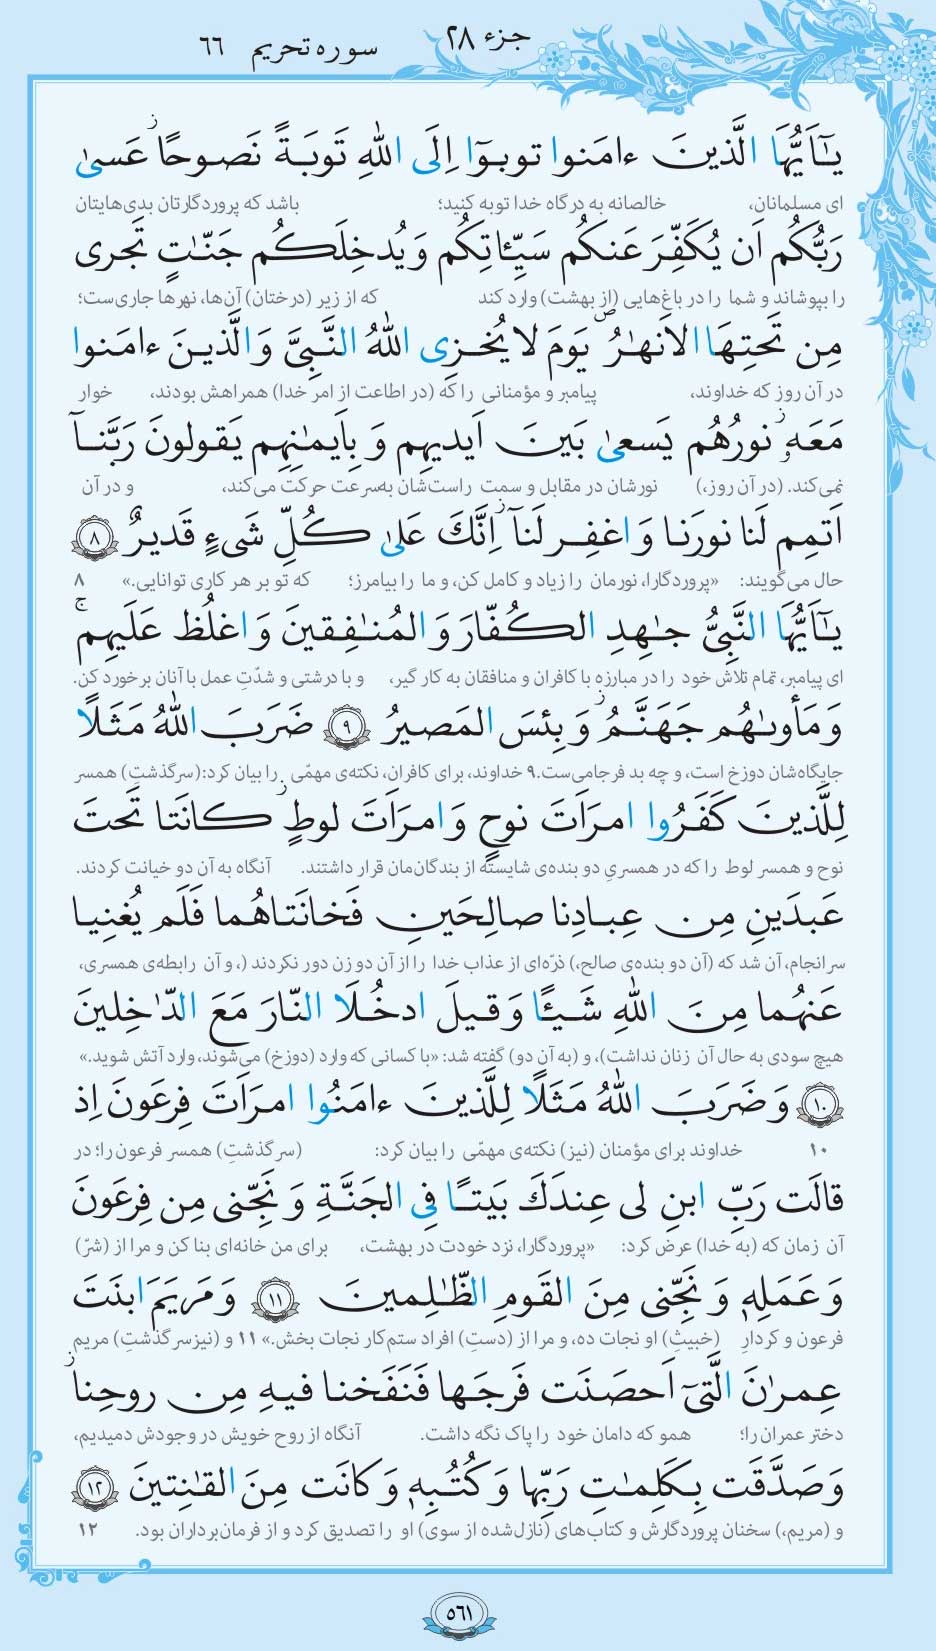 جزء ۲۸
سوره تحریم ۶۶
یٰٓاَیُّهَا الَّذینَ ءامَنوا توبوٓا اِلَی اللّٰهِ تَوبَةً نَصوحًا ۖ عَسیٰ
ای مسلمانان، خالصانه به درگاه خدا توبه کنید؛ باشد که پروردگارتان بدی‌هایتان
رَبُّکُم اَن یُکَفِّرَ عَنکُم سَیِّـٔاتِکُم وَ یُدخِلَکُم جَنّٰتٍ تَجری
را بپوشاند و شما را در باغ‌هایی (از بهشت) وارد کند که از زیر (درختان) آن‌ها، نهرها جاری‌ست؛
مِن تَحتِهَا الاَنهٰرُ ۖ یَومَ لا یُخزِی اللّٰهُ النَّبِیَّ وَ الَّذینَ ءامَنوا
در آن روز که خداوند، پیامبر و مؤمنانی را که (در اطاعت از امر خدا) همراهش بودند، خوار
مَعَهٗ ۖ نورُهُم یَسعیٰ بَینَ اَیدیهِم وَ بِاَیمٰنِهِم یَقولونَ رَبَّنآ
نمی‌کند. (در آن روز،) نورشان در مقابل و سمت راست‌شان به‌سرعت حرکت می‌کند، و در آن
اَتمِم لَنا نورَنا وَ اغفِر لَنآ ۖ اِنَّكَ عَلیٰ کُلِّ شَیءٍ قَدیرٌ ﴿۸﴾
حال می‌گویند: «پروردگارا، نورمان را زیاد و کامل کن، و ما را بیامرز؛ که تو بر هر کاری توانایی.» ۸
یٰٓاَیُّهَا النَّبِیُّ جٰهِدِ الکُفّارَ وَ المُنٰفِقینَ وَ اغلُظ عَلَیهِم ۚ
ای پیامبر، تمام تلاش خود را در مبارزه با کافران و منافقان به کار گیر، و با درشتی و شدّتِ عمل با آنان برخورد کن.
وَ مَأوىٰهُم جَهَنَّمُ ۖ وَ بِئسَ المَصیرُ ﴿۹﴾ ضَرَبَ اللّٰهُ مَثَلًا
جایگاه‌شان دوزخ است، و چه بد فرجامی‌ست. ۹ خداوند، برای کافران، نکته‌ی مهمّی را بیان کرد: (سرگذشتِ) همسر
لِلَّذینَ کَفَرُوا امرَاَتَ نوحٍ وَ امرَاَتَ لوطٍ ۖ کانَتا تَحتَ
نوح و همسر لوط را که در همسریِ دو بنده‌ی شایسته از بندگان‌مان قرار داشتند. آنگاه به آن دو خیانت کردند.
عَبدَینِ مِن عِبادِنا صالِحَینِ فَخانَتاهُما فَلَم یُغنِیا
سرانجام، آن شد که (آن دو بنده‌ی صالح،) ذرّه‌ای از عذاب خدا را از آن دو زن دور نکردند (، و آن رابطه‌ی همسری،
عَنهُما مِنَ اللّٰهِ شَیـًٔا وَ قیلَ ادخُلَا النّارَ مَعَ الدّٰخِلینَ
هیچ سودی به حال آن زنان نداشت)، و (به آن دو) گفته شد: «با کسانی که وارد (دوزخ) می‌شوند، وارد آتش شوید.»
﴿۱۰﴾ وَ ضَرَبَ اللّٰهُ مَثَلًا لِلَّذینَ ءامَنُوا امرَاَتَ فِرعَونَ اِذ
۱۰ خداوند برای مؤمنان (نیز) نکته‌ی مهمّی را بیان کرد: (سرگذشتِ) همسر فرعون را؛ در
قالَت رَبِّ ابنِ لی عِندَكَ بَیتًا فِی الجَنَّةِ وَ نَجِّنی مِن فِرعَونَ
آن زمان که (به خدا) عرض کرد: «پروردگارا، نزد خودت در بهشت، برای من خانه‌ای بنا کن و مرا از (شرّ)
وَ عَمَلِهٖ وَ نَجِّنی مِنَ القَومِ الظّٰلِمینَ ﴿۱۱﴾ وَ مَریَمَ ابنَتَ
فرعون و کردارِ (خبیثِ) او نجات ده، و مرا از (دستِ) افراد ستم‌کار نجات بخش.» ۱۱ و (نیز سرگذشتِ) مریم
عِمرٰنَ الَّتیٓ اَحصَنَت فَرجَها فَنَفَخنا فیهِ مِن روحِنا ۖ
دختر عمران را؛ همو که دامان خود را پاک نگه داشت. آنگاه از روح خویش در وجودش دمیدیم،
وَ صَدَّقَت بِکَلِمٰتِ رَبِّها وَ کُتُبِهٖ وَ کانَت مِنَ القٰنِتینَ ﴿۱۲﴾
و (مریم،) سخنان پروردگارش و کتاب‌های (نازل‌شده از سوی) او را تصدیق کرد و از فرمان‌برداران بود. ۱۲
۵۶۱